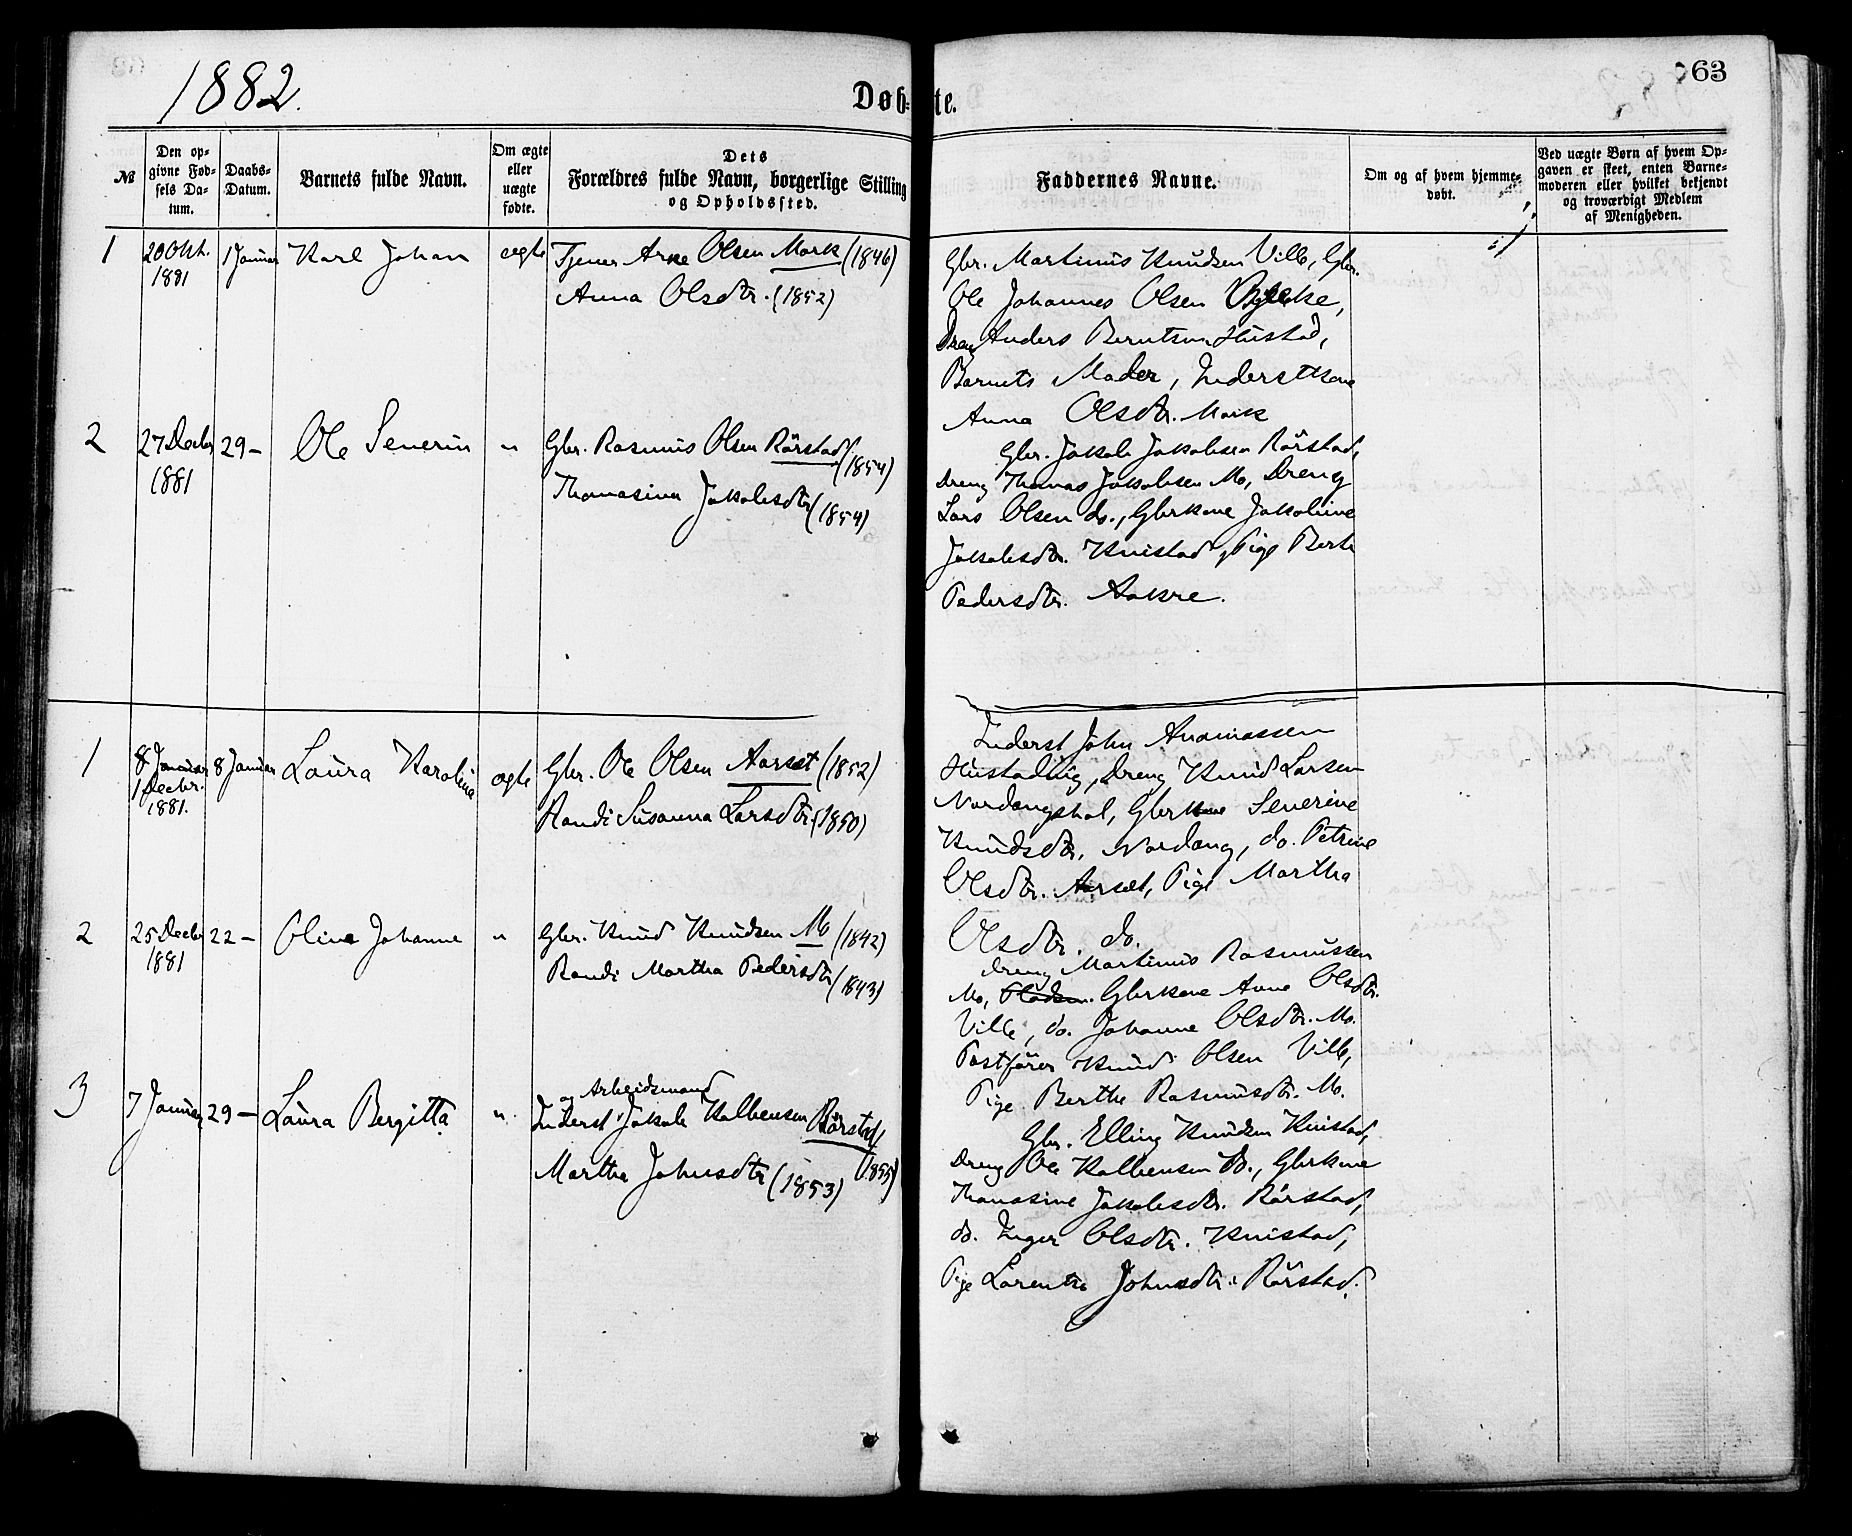 1882.
Døb-te.
63
№
Den op-
givne Fød-
sels Da-
tum.
Daabs-
Datum.
Barnets fulde Navn.
Om ægte
eller
uægte
fødte.
Dets
Forældres fulde Navn, borgerlige Stilling
og Opholdssted.
Faddernes Navne.
Om og af hvem hjemme-
døbt.
Ved uægte Børn af hvem Op-
gaven er skeet, enten Barne-
moderen eller hvilket bekjendt
og troværdigt Medlem
af Menigheden.
1
20 Okt.
1881
1 Januar
Karl Johan
ægte
Tjener Arne Olsen Mork (1846)
Anna Olsdtr. (1852)
Gbr. Martinus Knudsen Ville, Gbr.
Ole Johannes Olsen
Dreng Anders Berntsen Hustad,
Barnets Moder, Inderstkone
Anna Olsdtr. Mork
2
27 Decbr
1881
29 –
Ole Severin
"
Gbr. Rasmus Olsen Rörstad (1854)
Thomasina Jakobsdtr (1854)
Gbr. Jakob Jakobsen Rörstad,
Dreng Thomas Jakobsen Mo, Dreng
Lars Olsen do., Gbrkone Jakobine
Jakobsdtr. Knistad, Pige Berte
Pedersdtr. Aakre.
1
8 Januar
1 Decbr.
1881.
8 Januar
Laura Karolina
ægte
Gbr. Ole Olsen Aarset (1852)
Randi Susanna Larsdtr. (1850)
Inderst John Andreassen
Hustadlig, Dreng Knud Larsen
Nordangshal, Gbrkone Severine
Knudsdtr. Nordang, do. Petrine
Olsdtr. Aarset, Pige Martha
Olsdtr. do.
2
25 Decbr
1881
22 –
Oline Johanne
"
Gbr. Knud Knudsen Mo (1842)
Randi Martha Pedersdtr (1843)
Dreng Martinus Rasmussen
Mo, Gbrkone Anne Olsdtr.
Ville, do. Johanne Olsdtr. Mo.
Postförer Knud Olsen Ville,
Pige Berthe Rasmusdtr. Mo.
3
7 Januar
29 –
Laura Bergitta
"
og Arbeidsmand
Inderst Jakob Kolbensen Rörstad
(1853)
Martha Johnsdtr (1853)
Gbr. Elling Knudsen Knistad,
Dreng Ole Kolbensen do., Gbrkone
Thomasine Jakobsdtr. Rörstad,
do. Inger Olsdtr. Knistad,
Pige Lorentse Johnsdtr. Rörstad.